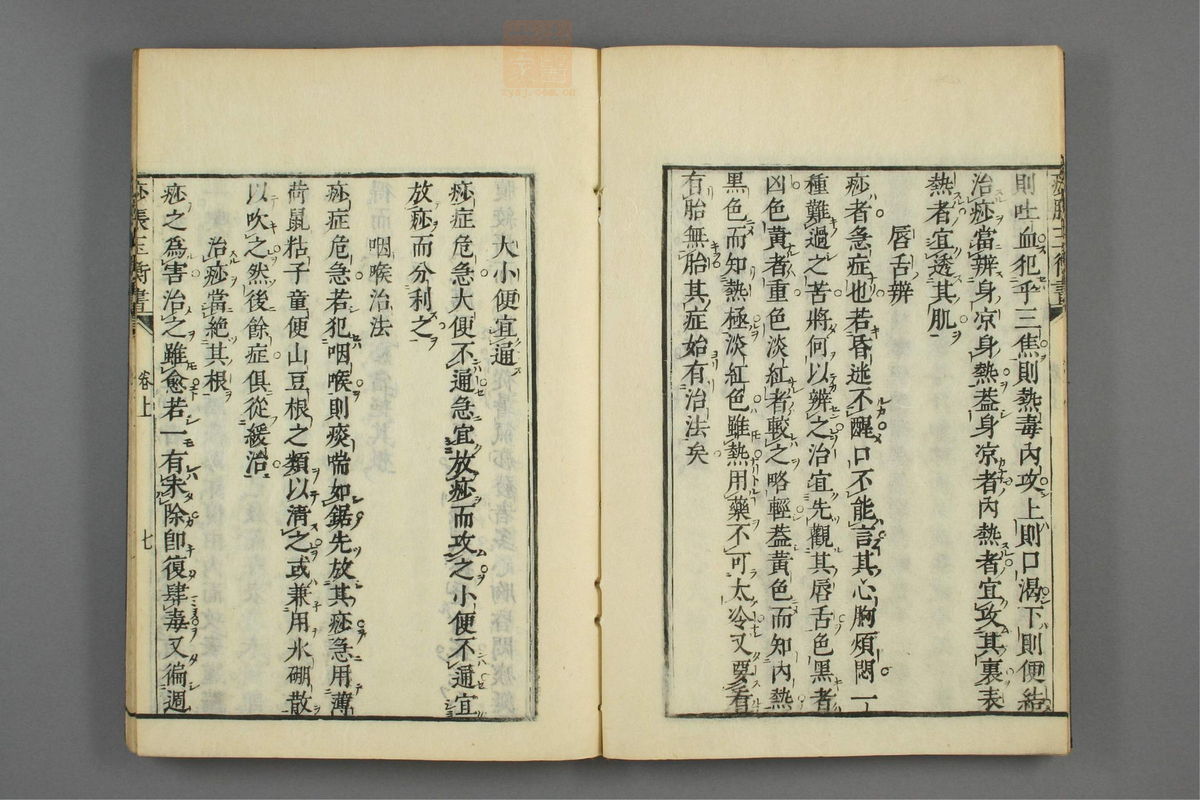 則吐血犯乎三焦則熱毒內攻上則口渴下則便結
治痧當辨身凉身熱葢身凉者內熱者宜攻其裏表
熱者宜透其肌
唇舌辨
痧者急症也若昏迷不醒口不能言其心胸煩悶一
種難過之苦將何以辨之治宜先觀其唇舌色黑者
凶色黃者重色淡紅者較之略輕葢黃色而知內熱
黑色而知熱極淡紅色雖熱用藥不可太冷又要看
有胎無胎其症始有治法矣
大小便宜通
痧症危急大便不通急宜放痧而攻之小便不通宜
放痧而分利之
咽喉治法
痧症危急若犯咽喉則痰喘如鋸先放其痧急用薄
荷鼠粘子童便山豆根之類以清之或兼用氷硼散
以吹之然後餘症俱從緩治
治痧當絕其根
痧之爲害治之雖愈若一有未除卽復肆毒又徧週
痧脹玉衡書 卷上 七